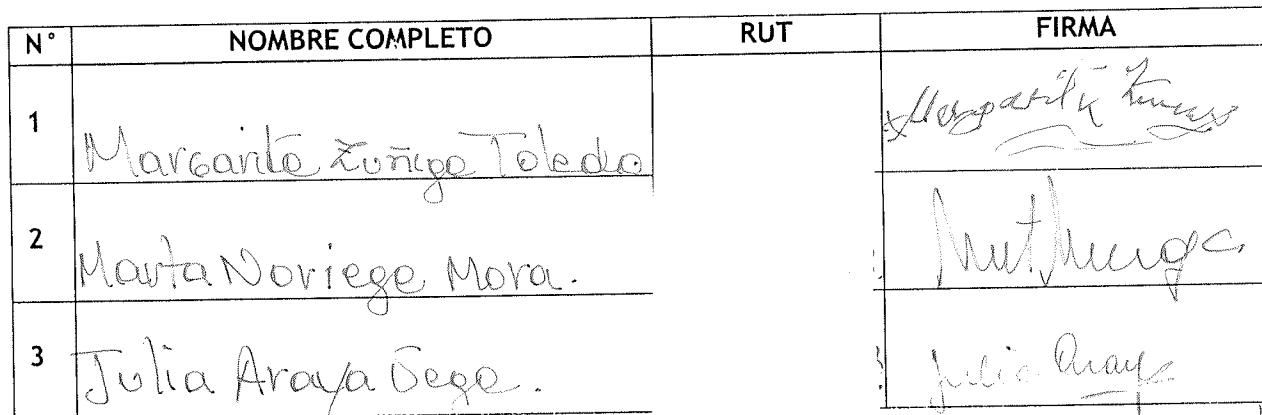 N° NOMBRE COMPLETO RUT FIRMA
1 Margarita Zuñiga Toledo Margarita
2 Marta Noriega Mora.
3 Julia Araya Julia Araya